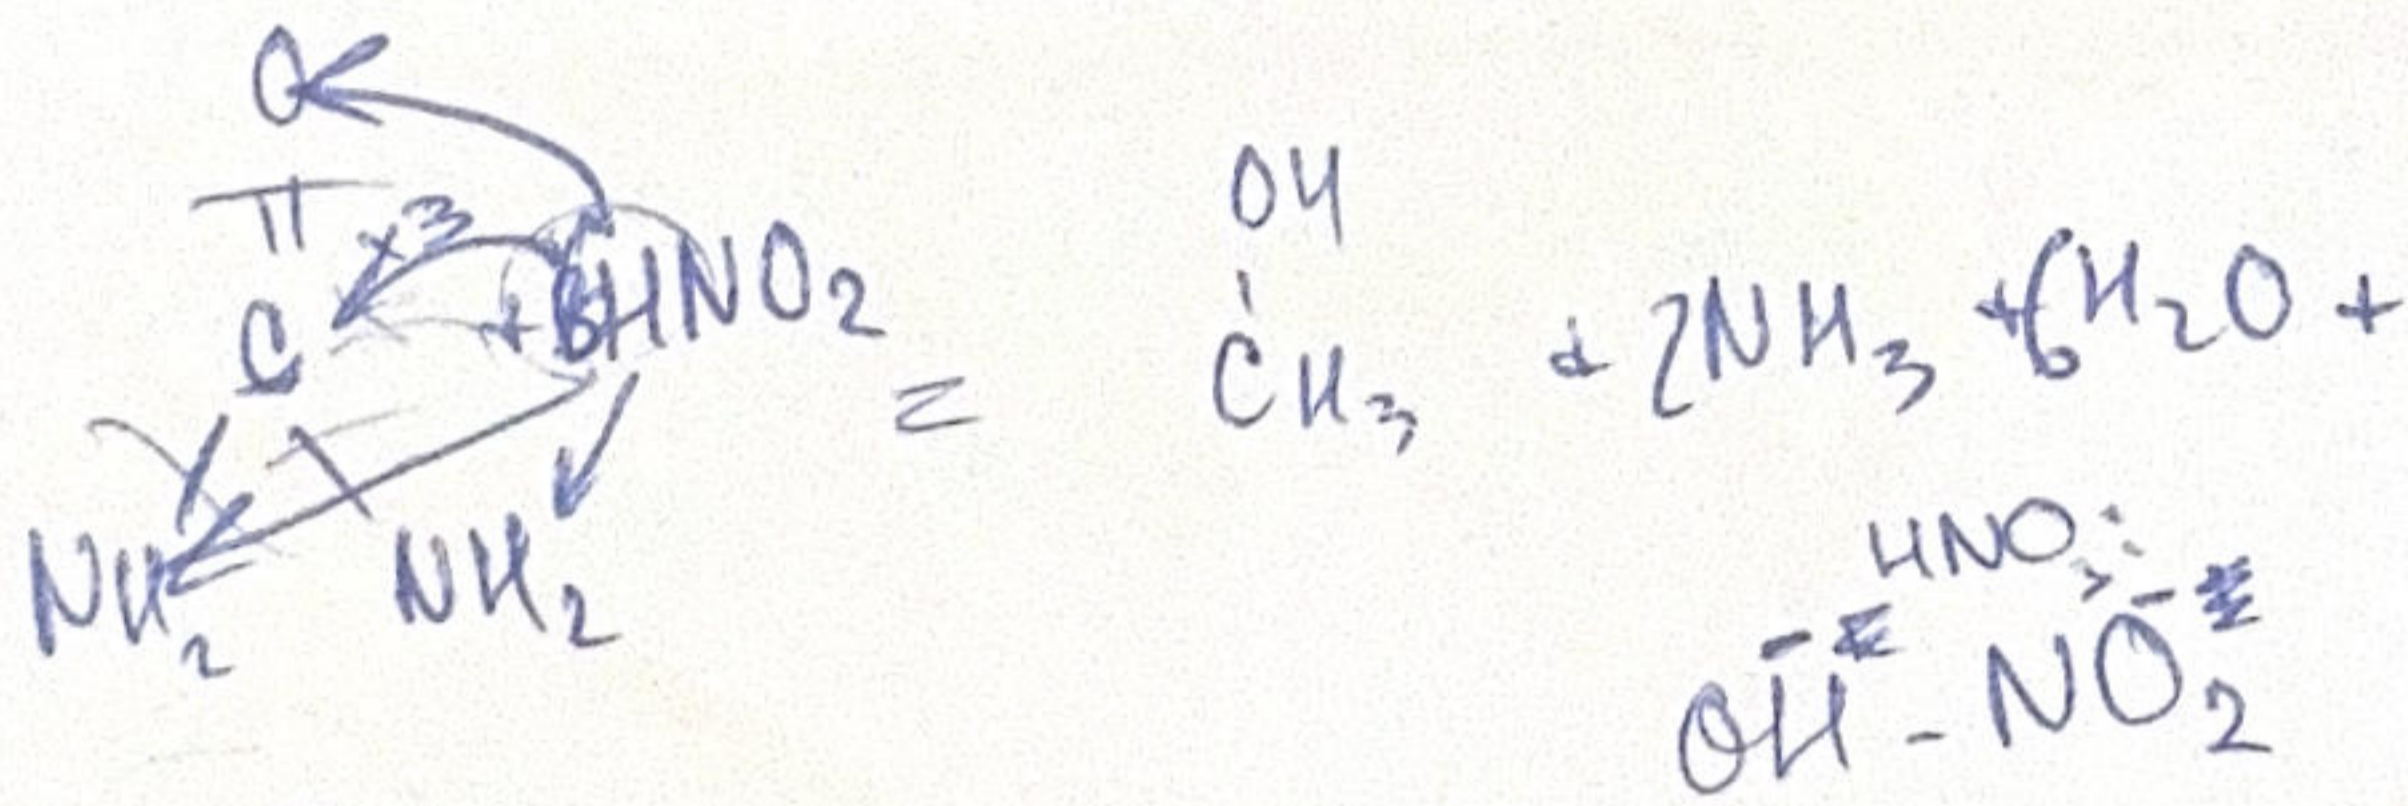 O
||
C ×3 + 6HNO2 = CH3 + 2NH3 + 6H2O +
OH
NH2 NH2
HNO3:
OH - NO2